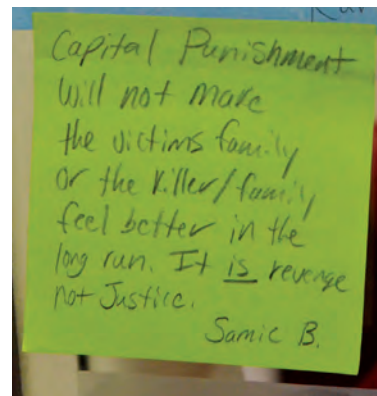 Capital Punishment
will not make
the victims family
or the killer/family
feel better in the
long run. It is revenge
not Justice.
Samic B.